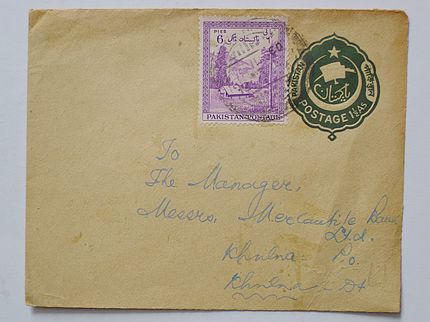 PIES
6
پاکستان
PAKISTAN POSTAGE
PAKISTAN
পাকিস্তান
پاکستان
POSTAGE 1½ AS
To
The Manager,
Messrs, Mercantile Bank
Ltd.
Khulna P.o.
Khulna - Dt